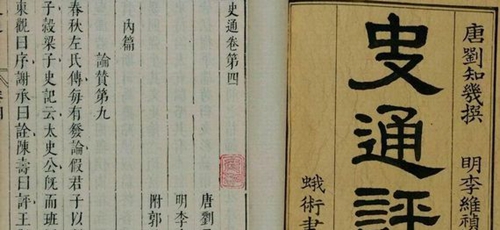 唐劉知幾撰 明李維禎
史通評
蛾術書
史通卷第四
唐劉
明李
附郭
內篇
論贊第九
春秋左氏傳每有發論假君子以
子穀梁子史記云太史公既而班
東觀曰序謝承曰詮陳壽曰評王